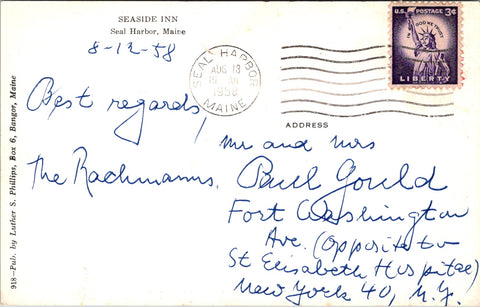 SEASIDE INN
Seal Harbor, Maine
8-12-58
Best regards,
The Rachmanns.
918-Pub. by Luther S. Phillips, Box 6, Bangor, Maine
SEAL HARBOR
AUG 13
1958
MAINE
U.S. POSTAGE 3¢
IN GOD WE TRUST
LIBERTY
ADDRESS
Mr and Mrs
Paul Gould
Fort Washington
Ave. (Opposite to
St Elisabeth Hospital)
New York 40, N.Y.